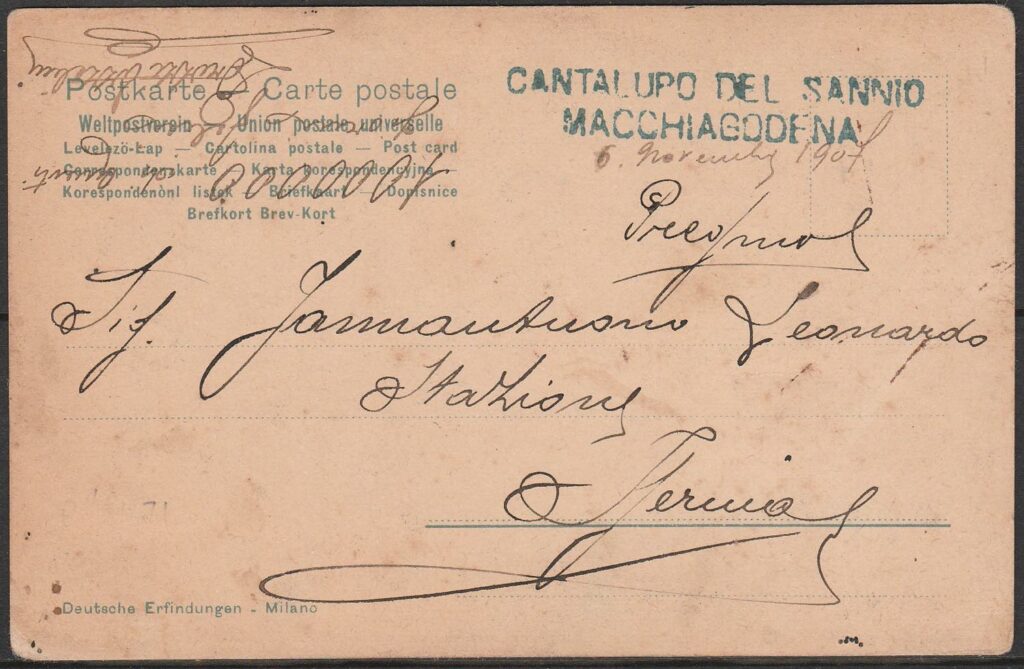 Postkarte — Carte postale
Weltpostverein — Union postale universelle
Levelező-Lap — Cartolina postale — Post card
Correspondenzkarte — Karta korespondencyjna —
Korespondenční listek — Briefkaart — Dopisnice
Brefkort Brev-Kort
CANTALUPO DEL SANNIO
MACCHIAGODENA
6. Novembre 1907
Sig. Jannantuono Leonardo
Stazione
Isernia
Deutsche Erfindungen - Milano